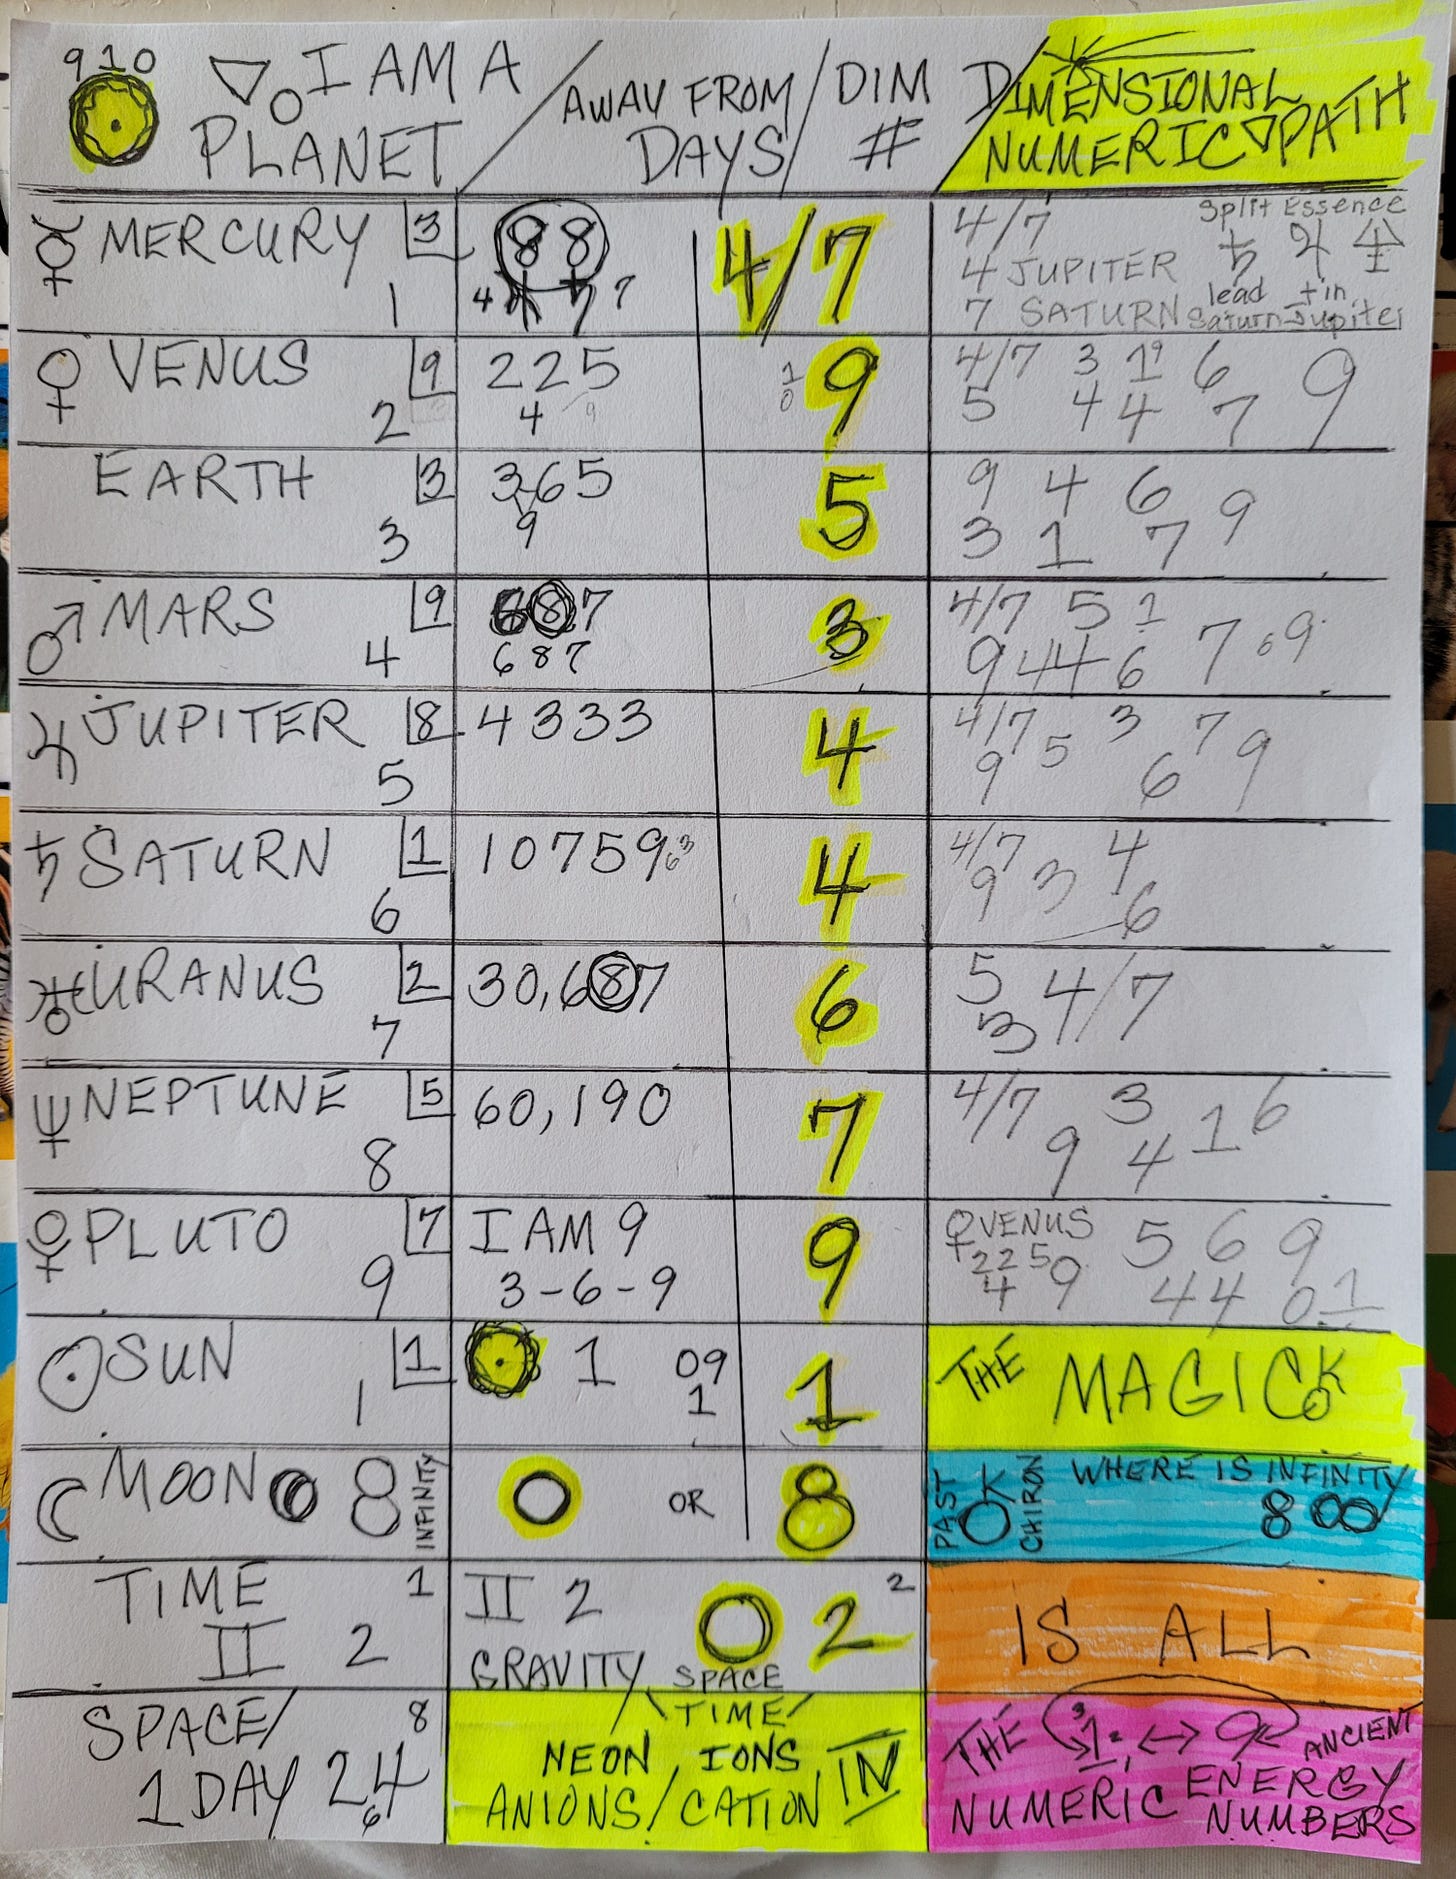 910
▽ I AM A
PLANET
AWAY FROM
DAYS
DIM
#
DIMENSIONAL
NUMERIC ▽ PATH
☿ MERCURY 3
1
88
4 ♃ ♄ 7
4/7
4/7 Split Essence
4 JUPITER ♄ ♃
7 SATURN lead tin
Saturn-Jupiter
♀ VENUS 9
2
225
4 9
10
9
4/7 3 1 9 6 9
5 4 4 7
EARTH 3
3
365
9
5
9 4 6 9
3 1 7
♂ MARS 9
4
687
687
3
4/7 5 1 7 6 9
9 4 4 6
♃ JUPITER 8
5
4333
4
4/7 5 3 7 9
9 6
♄ SATURN 1
6
10759 63
4
4/7 4
9 3 6
♅ URANUS 2
7
30,687
6
5 4/7
3
♆ NEPTUNE 5
8
60,190
7
4/7 3 6
9 4 1
PLUTO 7
9
I AM 9
3-6-9
9
♀ VENUS 5 6 9
225 9
4 4 4 0 1
☉ SUN 1
1
1 09
1
1
THE MAGICK
☾ MOON 8 INFINITY
O OR 8
PAST OK CHIRON WHERE IS INFINITY
8 ∞
TIME 1
II 2
II 2 O 2 2
GRAVITY/SPACE
IS ALL
SPACE/ 8
1 DAY 24
6
TIME/
NEON IONS
ANIONS/CATION IN
THE 3 1 2 ↔ 9 ANCIENT
NUMERIC ENERGY
NUMBERS